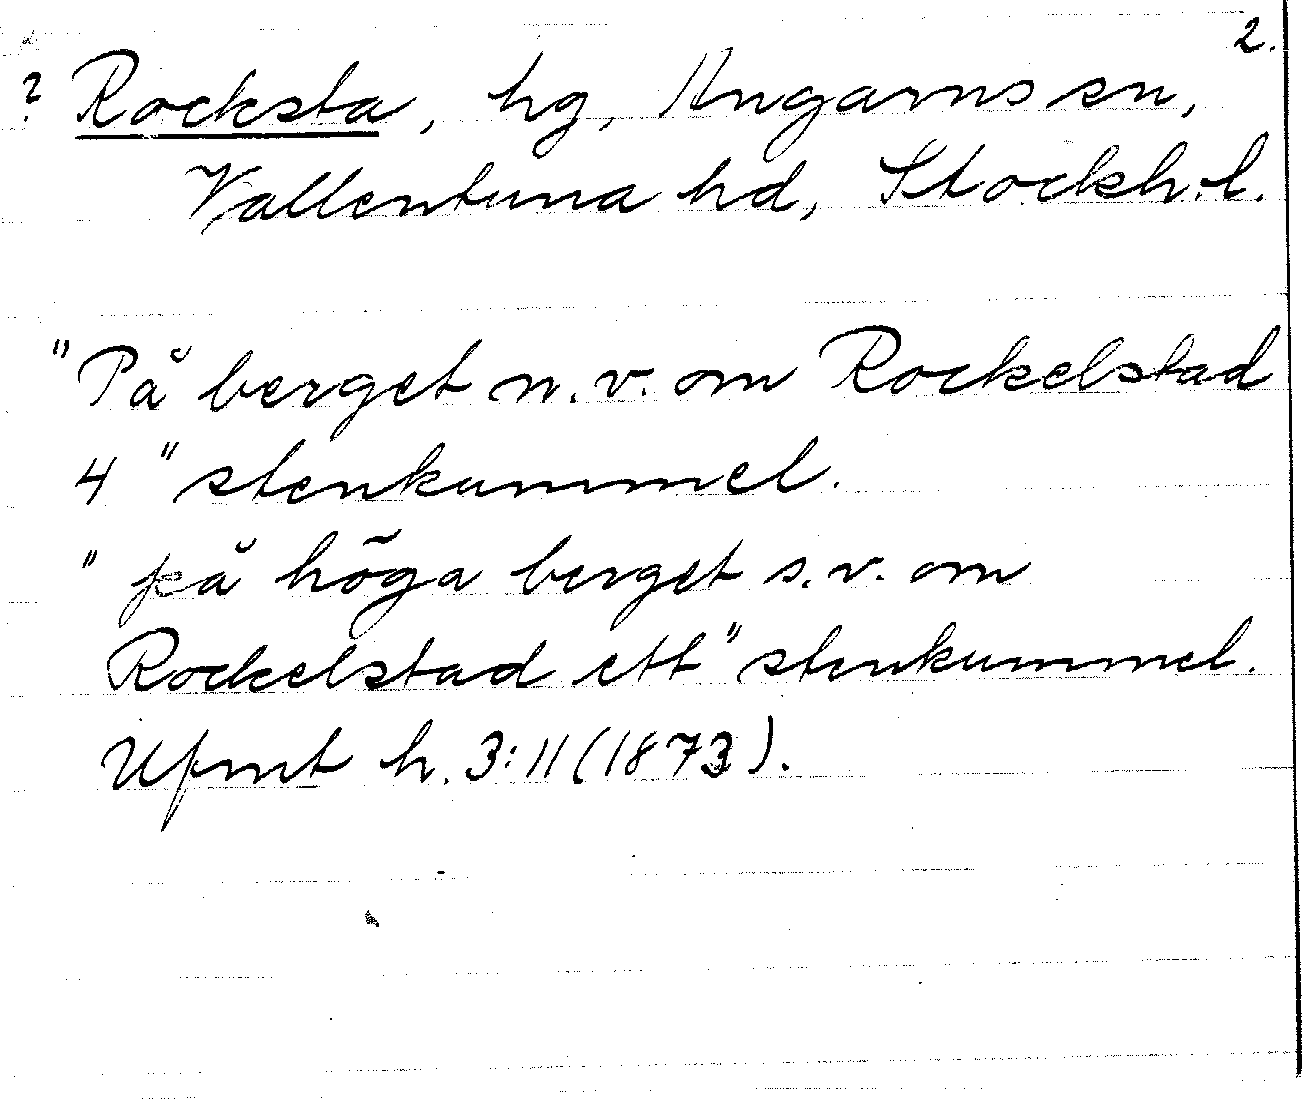 2.
? Rocksta, hg, Ungarns sn,
Vallentuna hd, Stockh.l.
"På berget n.v. om Rockelstad
4" stenkummel.
"på höga berget s.v. om
Rockelstad ett" stenkummel.
Ufmt h. 3:11 (1873).